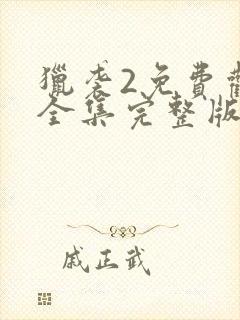 獵袭2免費
全集完整版
戚正武